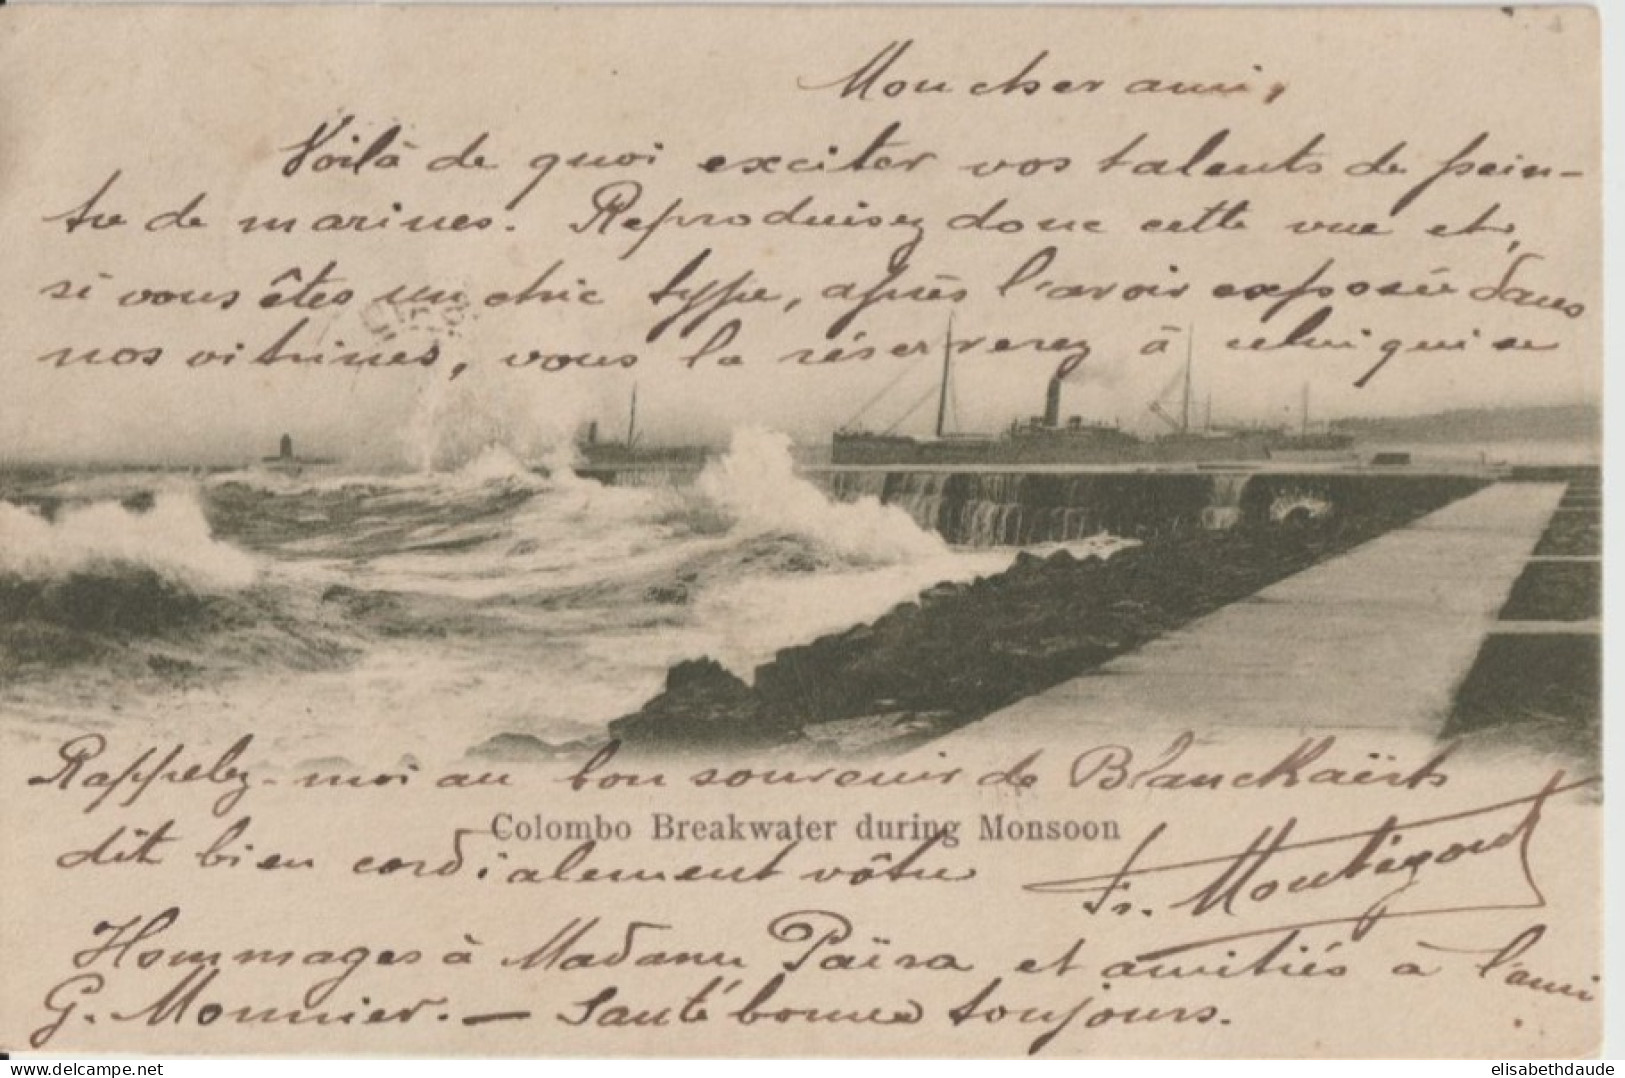 Mon cher ami,
Voilà de quoi exciter vos talents de pein-
tre de marines. Reproduisez donc cette vue et,
si vous êtes un chic type, après l'avoir exposée dans
nos vitrines, vous la réserverez à celui qui se
Rappelez-moi au bon souvenir de Blanckaërts
Colombo Breakwater during Monsoon
dit bien cordialement vôtre
Fr. Montégout
Hommages à Madame Païva et amitiés à l'ami
G. Monnier. — Santé bonne toujours.
delcampe.net
elisabethdaude